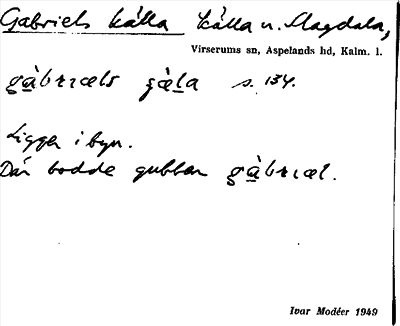 Gabriels källa källa u. Slagdala,
Virserums sn, Aspelands hd, Kalm. l.
gàbrıæls ɟæ̀la s. 134.
Ligger i byn.
Där bodde gubben gàbrıæl.
Ivar Modéer 1949